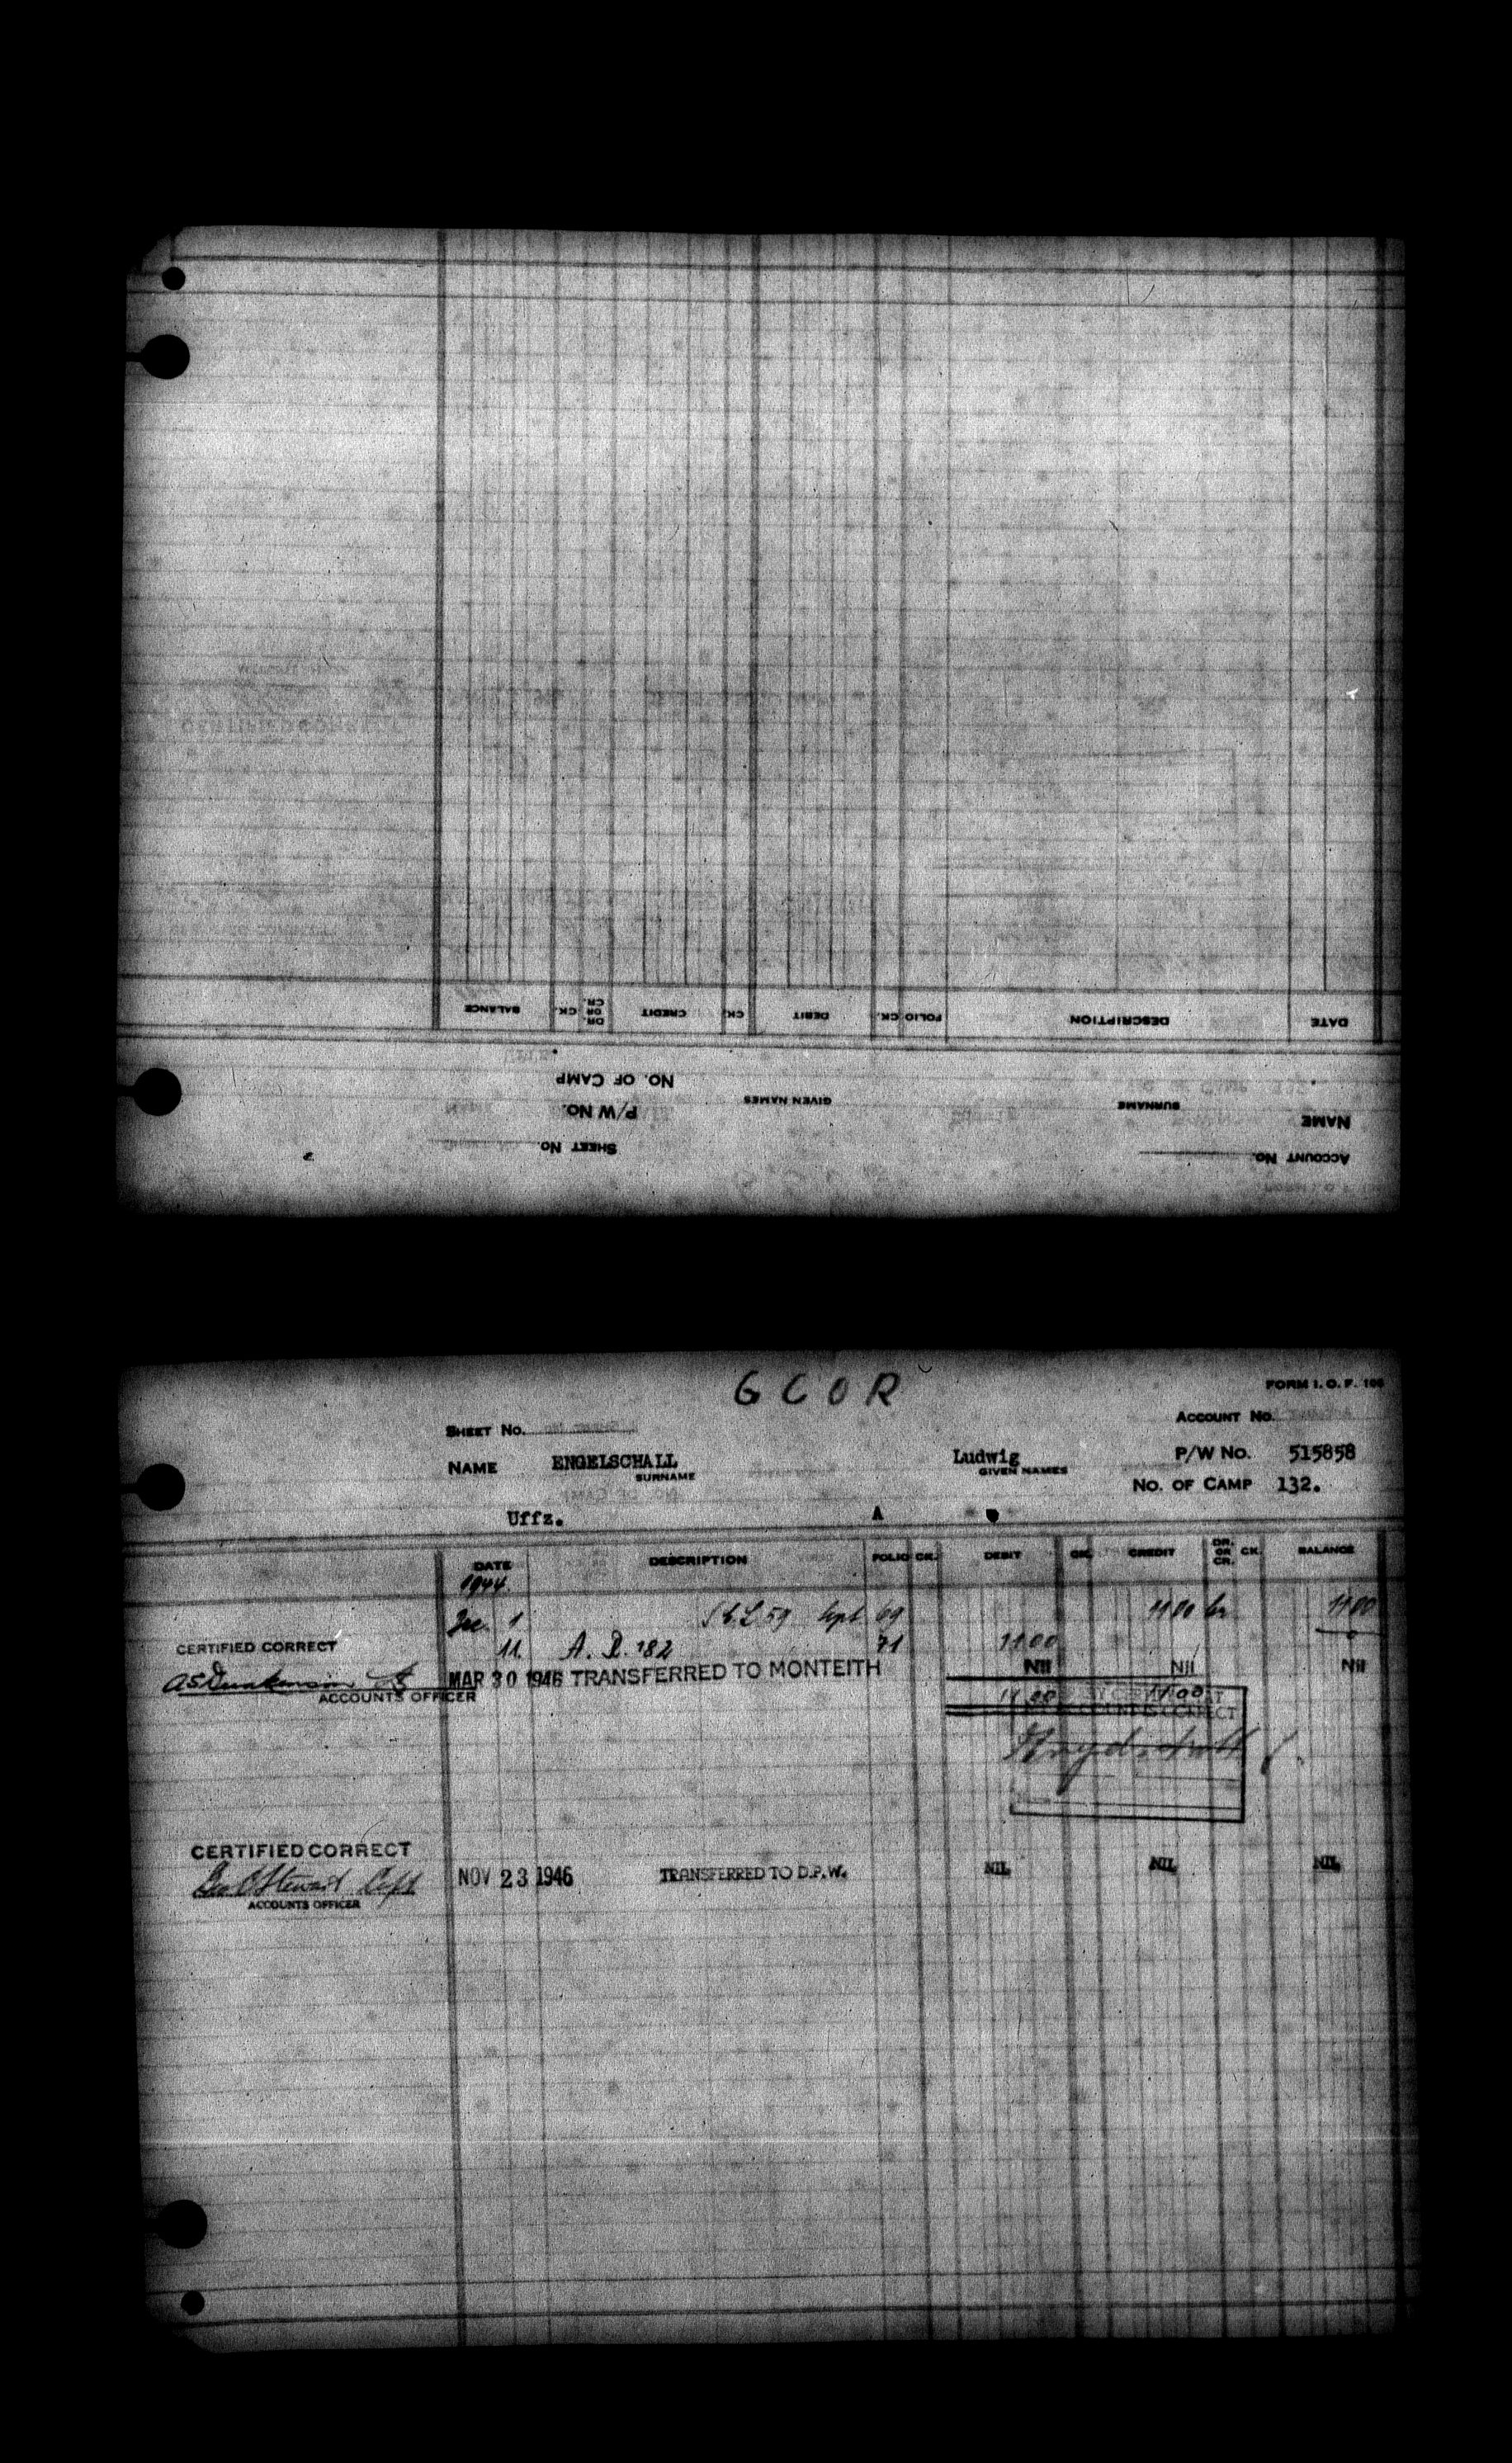 BALANCE CK. DR. OR CR. CREDIT CK. DEBIT CK. FOLIO DESCRIPTION DATE
NO. OF CAMP
P/W NO. GIVEN NAMES SURNAME NAME
SHEET NO. ACCOUNT NO.
G C O R
FORM I. O. F. 106
SHEET NO. ACCOUNT NO.
NAME ENGELSCHALL Ludwig P/W NO. 515858
SURNAME GIVEN NAMES
NO. OF CAMP 132.
Uffz. A
DATE DESCRIPTION FOLIO CK. DEBIT CK. CREDIT DR. OR CR. CK. BALANCE
1944
Dec. 1 59 Sept 69 11 00 cr 11 00
CERTIFIED CORRECT 11. A. R. 182 71 11 00 0
MAR 30 1946 TRANSFERRED TO MONTEITH Nil Nil Nil
ACCOUNTS OFFICER
11 00 11 00
ACCOUNT IS CORRECT
CERTIFIED CORRECT
Stewart Capt NOV 23 1946 TRANSFERRED TO D.P.W. NIL NIL NIL
ACCOUNTS OFFICER